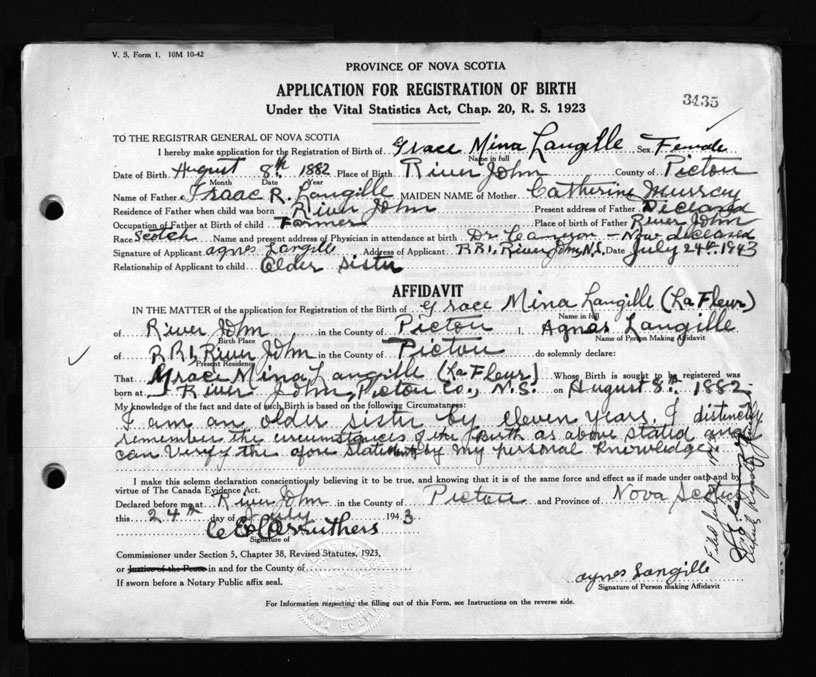 V. S. Form 1, 10M 10-42
PROVINCE OF NOVA SCOTIA
APPLICATION FOR REGISTRATION OF BIRTH
Under the Vital Statistics Act, Chap. 20, R. S. 1923
3435
TO THE REGISTRAR GENERAL OF NOVA SCOTIA
I hereby make application for the Registration of Birth of Grace Mina Langille Sex Female
Name in full
Date of Birth August 8th 1882 Place of Birth River John County of Pictou
Month Date Year
Name of Father Isaac R. Langille MAIDEN NAME of Mother Catherine Murray
Residence of Father when child was born River John Present address of Father Diceased
Occupation of Father at Birth of child Farmer Place of birth of Father River John
Race Scotch Name and present address of Physician in attendance at birth Dr. - Now diceased
Signature of Applicant agnes Langille Address of Applicant R R 1, River John, N.S. Date July 24th 1943
Relationship of Applicant to child Older sister
AFFIDAVIT
IN THE MATTER of the application for Registration of the Birth of Grace Mina Langille (La Fleur)
Name in full
of River John in the County of Pictou I, Agnes Langille
Birth Place Name of Person Making Affidavit
of R R 1, River John in the County of Pictou do solemnly declare:
Present Residence
That Grace Mina Langille (La Fleur) Whose Birth is sought to be registered was
born at River John, Pictou Co., N.S. on August 8th 1882
My knowledge of the fact and date of such Birth is based on the following Circumstances:
I am an older sister by eleven years. I distinctly
remember the circumstances of the Birth as above stated and
can verify the afore statement by my personal knowledge.
I make this solemn declaration conscientiously believing it to be true, and knowing that it is of the same force and effect as if made under oath and by
virtue of The Canada Evidence Act.
Declared before me at River John in the County of Pictou and Province of Nova Scotia
this 24th day of July 1943
C E Carruthers
Signature of
Commissioner under Section 5, Chapter 38, Revised Statutes, 1923,
or Justice of the Peace in and for the County of
If sworn before a Notary Public affix seal.
agnes Langille
Signature of Person making Affidavit
For Information respecting the filling out of this Form, see Instructions on the reverse side.